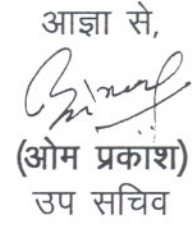 आज्ञा से,
(ओम प्रकाश)
उप सचिव